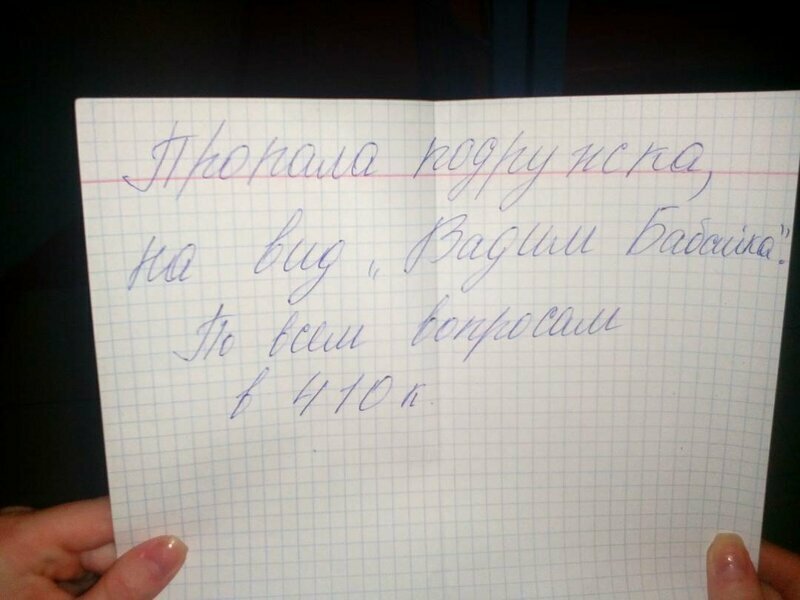 Пропала подружка,
на вид „Вадим Бабайка".
По всем вопросам
в 410 к.